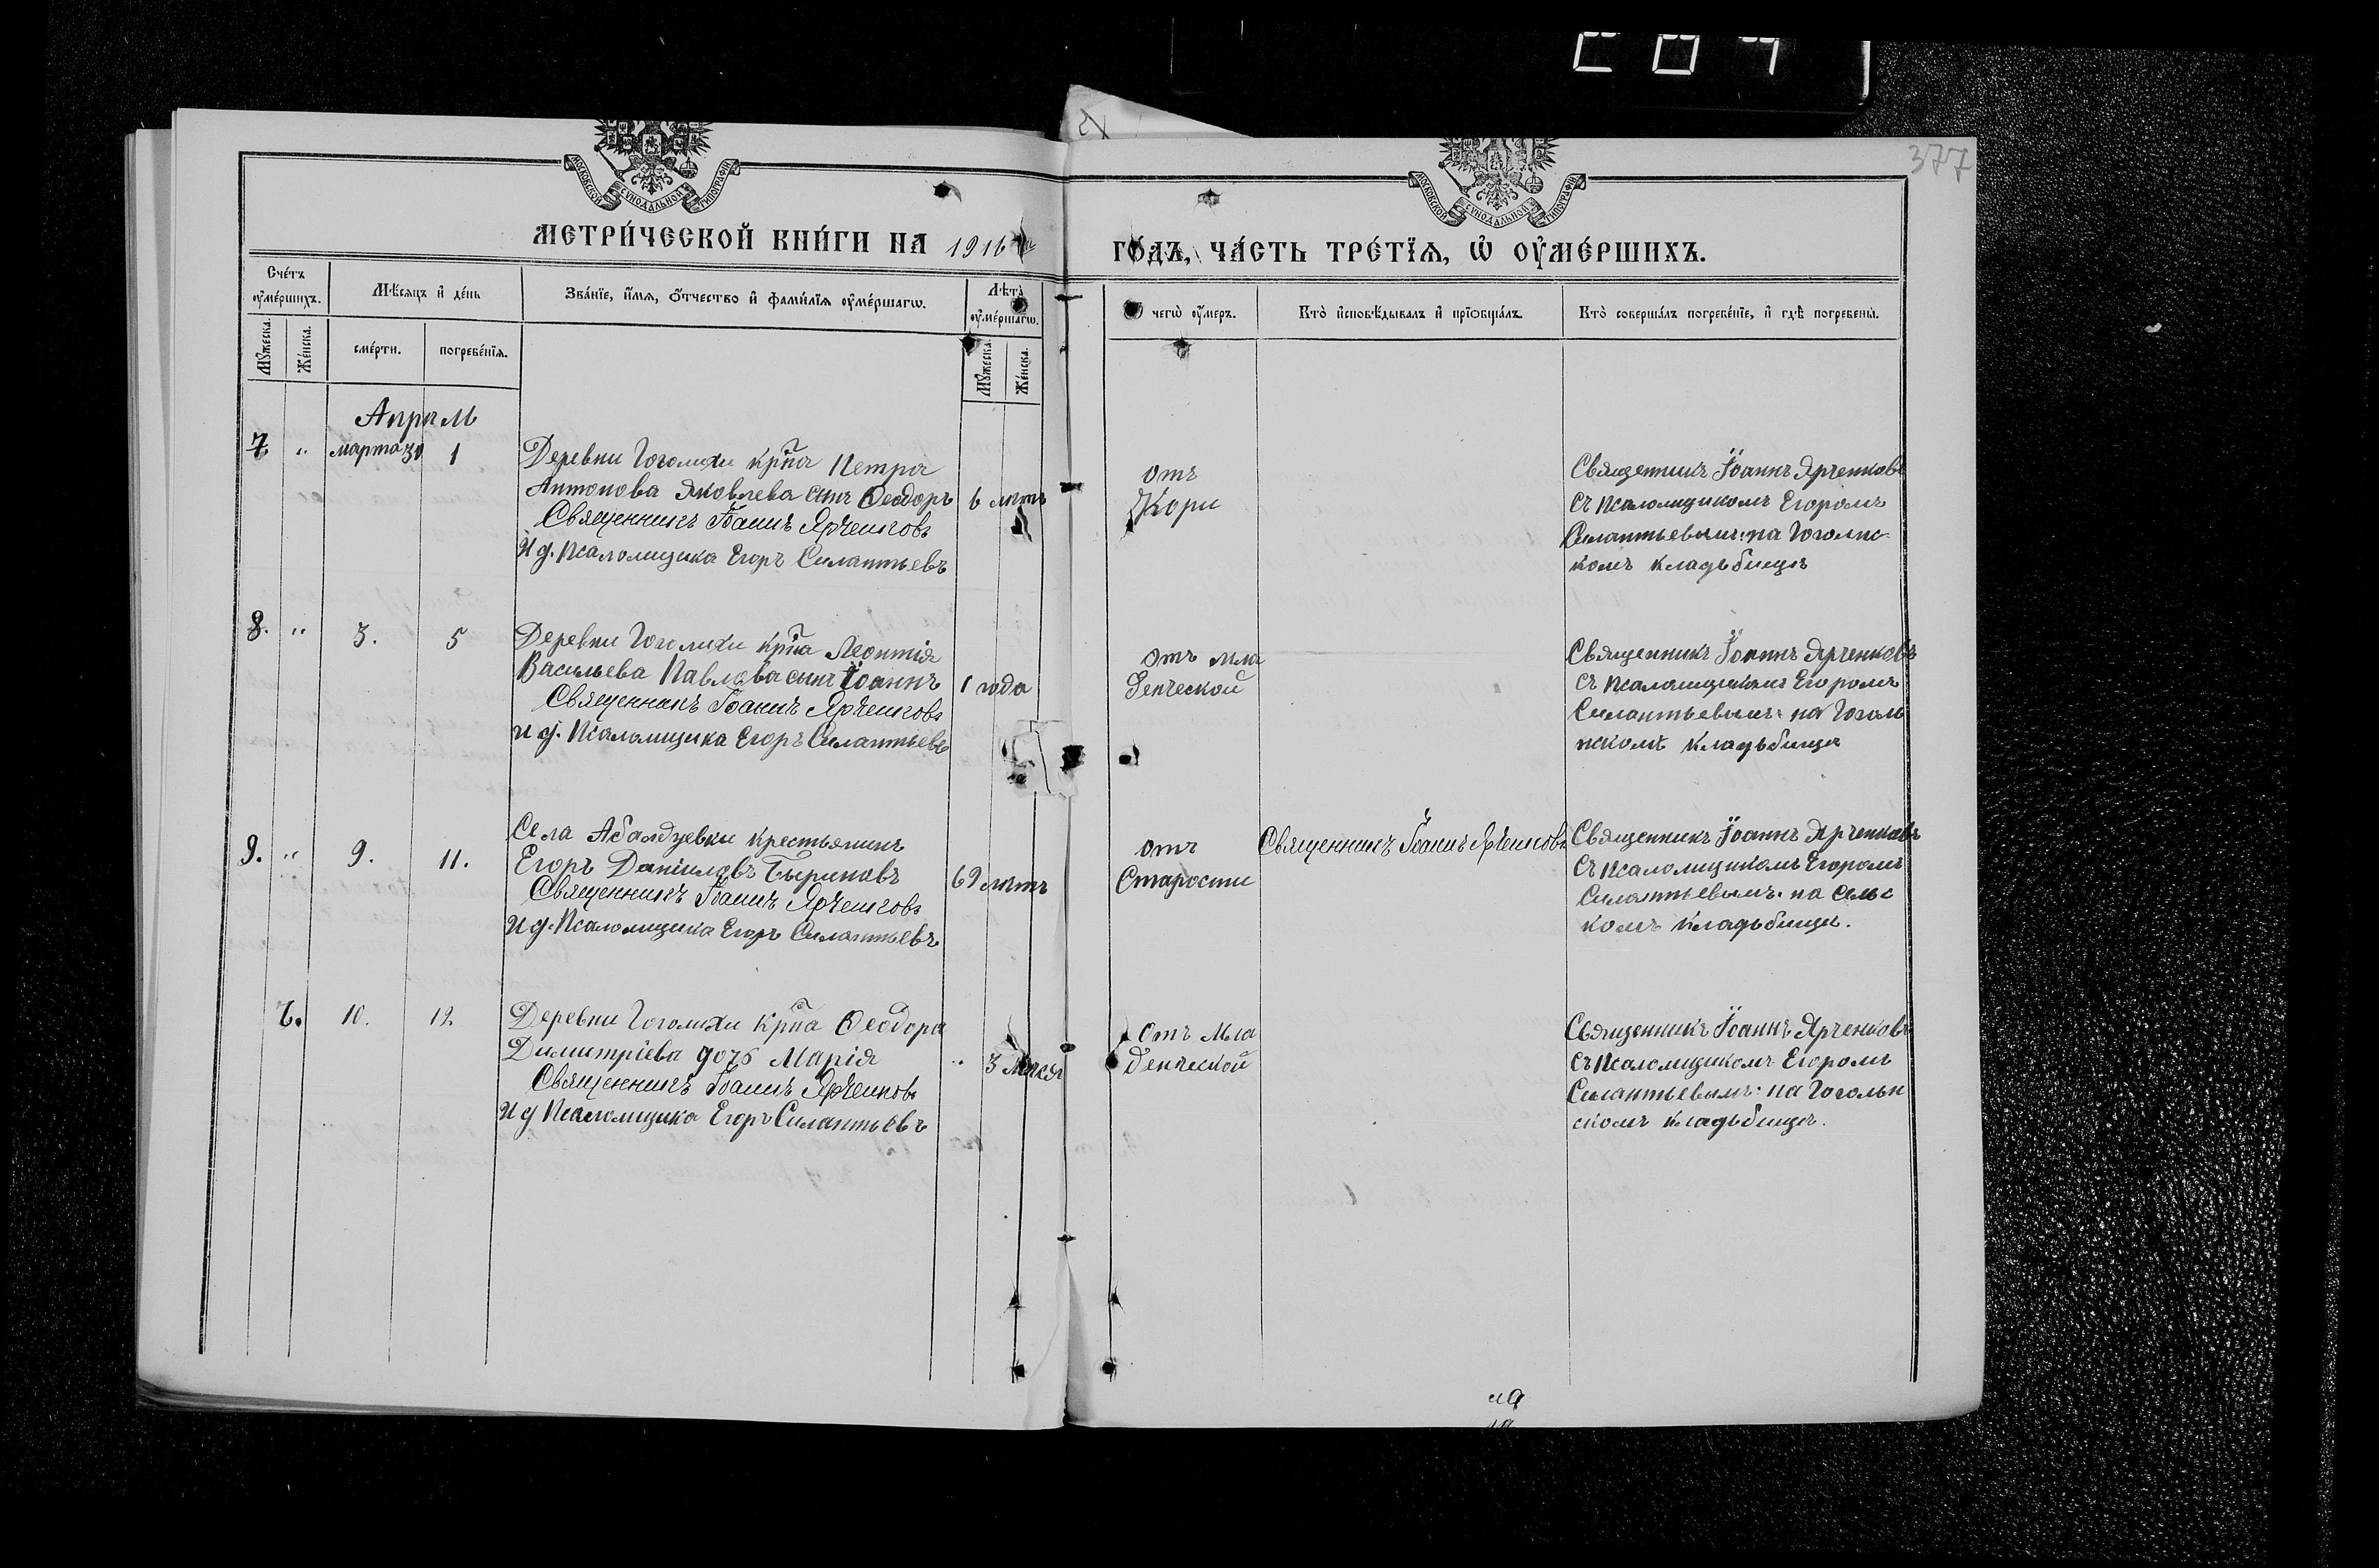 377
МОСКОВСКОЙ СѴНОДАЛЬНОЙ ТИПОГРАФІИ
МОСКОВСКОЙ СѴНОДАЛЬНОЙ ТИПОГРАФІИ
МЕТРИ́ЧЕСКОЙ КНИ́ГИ НА 1916 ГО́ДЪ, ЧА́СТЬ ТРЕ́ТЇѦ, Ѡ҆ ОУ҆МЕ́РШИХЪ.
Сче́тъ оу҆ме́ршихъ.
Мѣ́сяцъ и҆ де́нь
Зва́нїе, и҆́мѧ, ѻ҆́тчество и҆ фами́лїѧ оу҆ме́ршагѡ.
Лѣ́та оу҆ме́ршагѡ.
чегѡ̀ оу҆́меръ.
Кто̀ и҆сповѣ́дывалъ и҆ прїѡбща́лъ.
Кто̀ соверша́лъ погребе́нїе, и҆ гдѣ̀ погребены̀.
Мꙋ́жеска.
Же́нска.
сме́рти.
погребе́нїѧ.
Мꙋ́жеска.
Же́нска.
Апрѣль
7 " марта 30 1
Деревни Гоголихи крпа Петра
Антонова Яковлева сынъ Ѳеодоръ 6 лѣтъ
Священникъ Іоаннъ Ярченковъ
И д. Псаломщика Егоръ Силантьевъ
отъ
Кори
Священникъ Іоаннъ Ярченковъ
съ Псаломщикомъ Егоромъ
Силантьевымъ: на Гоголис-
комъ кладьбищѣ
8. " 3. 5
Деревни Гоголихи крпа Леонтія
Васильева Павлова сынъ Іоаннъ 1 года
Священникъ Іоаннъ Ярченковъ
и д. Псаломщика Егоръ Силантьевъ
отъ мла
денческой
Священникъ Іоаннъ Ярченковъ
съ Псаломщикомъ Егоромъ
Силантьевымъ: на Гоголь
нскомъ кладьбищѣ
9. " 9. 11.
Села Абалдуевки крестьянинъ
Егоръ Даніиловъ Быриновъ 69 лѣтъ
Священникъ Іоаннъ Ярченковъ
И д. Псаломщика Егоръ Силантьевъ
отъ
Старости
Священникъ Іоаннъ Ярченковъ
Священникъ Іоаннъ Ярченковъ
съ Псаломщикомъ Егоромъ
Силантьевымъ: на сельс
комъ кладьбищѣ.
7. 10. 12.
Деревни Гоголихи Крпа Ѳеодора
Димитріева дочь Марія " 3 мѣся
Священникъ Іоаннъ Ярченковъ
И д Псаломщика Егоръ Силантьевъ
Отъ Мла
денческой
Священникъ Іоаннъ Ярченковъ
съ Псаломщикомъ Егоромъ
Силантьевымъ: на Гогольн
скомъ кладьбищѣ.